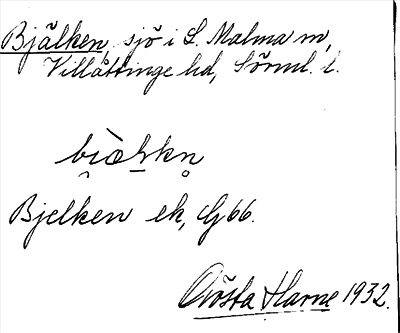 Bjälken, sjö i L. Malma sn,
Villåttinge hd, Sörml. l.
bìælkn̥
Bjelken ek, G66.
Gösta Harne 1932.